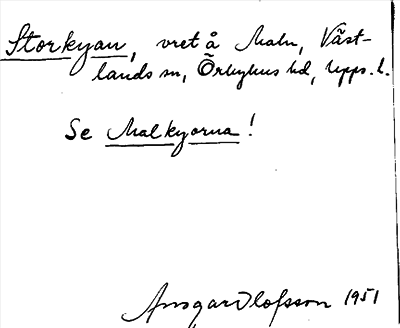 Storkyan, vret å Maln, Väst-
lands sn, Örbyhus hd, Upps. l.
Se Malkyorna!
Ansgar Olofsson 1951